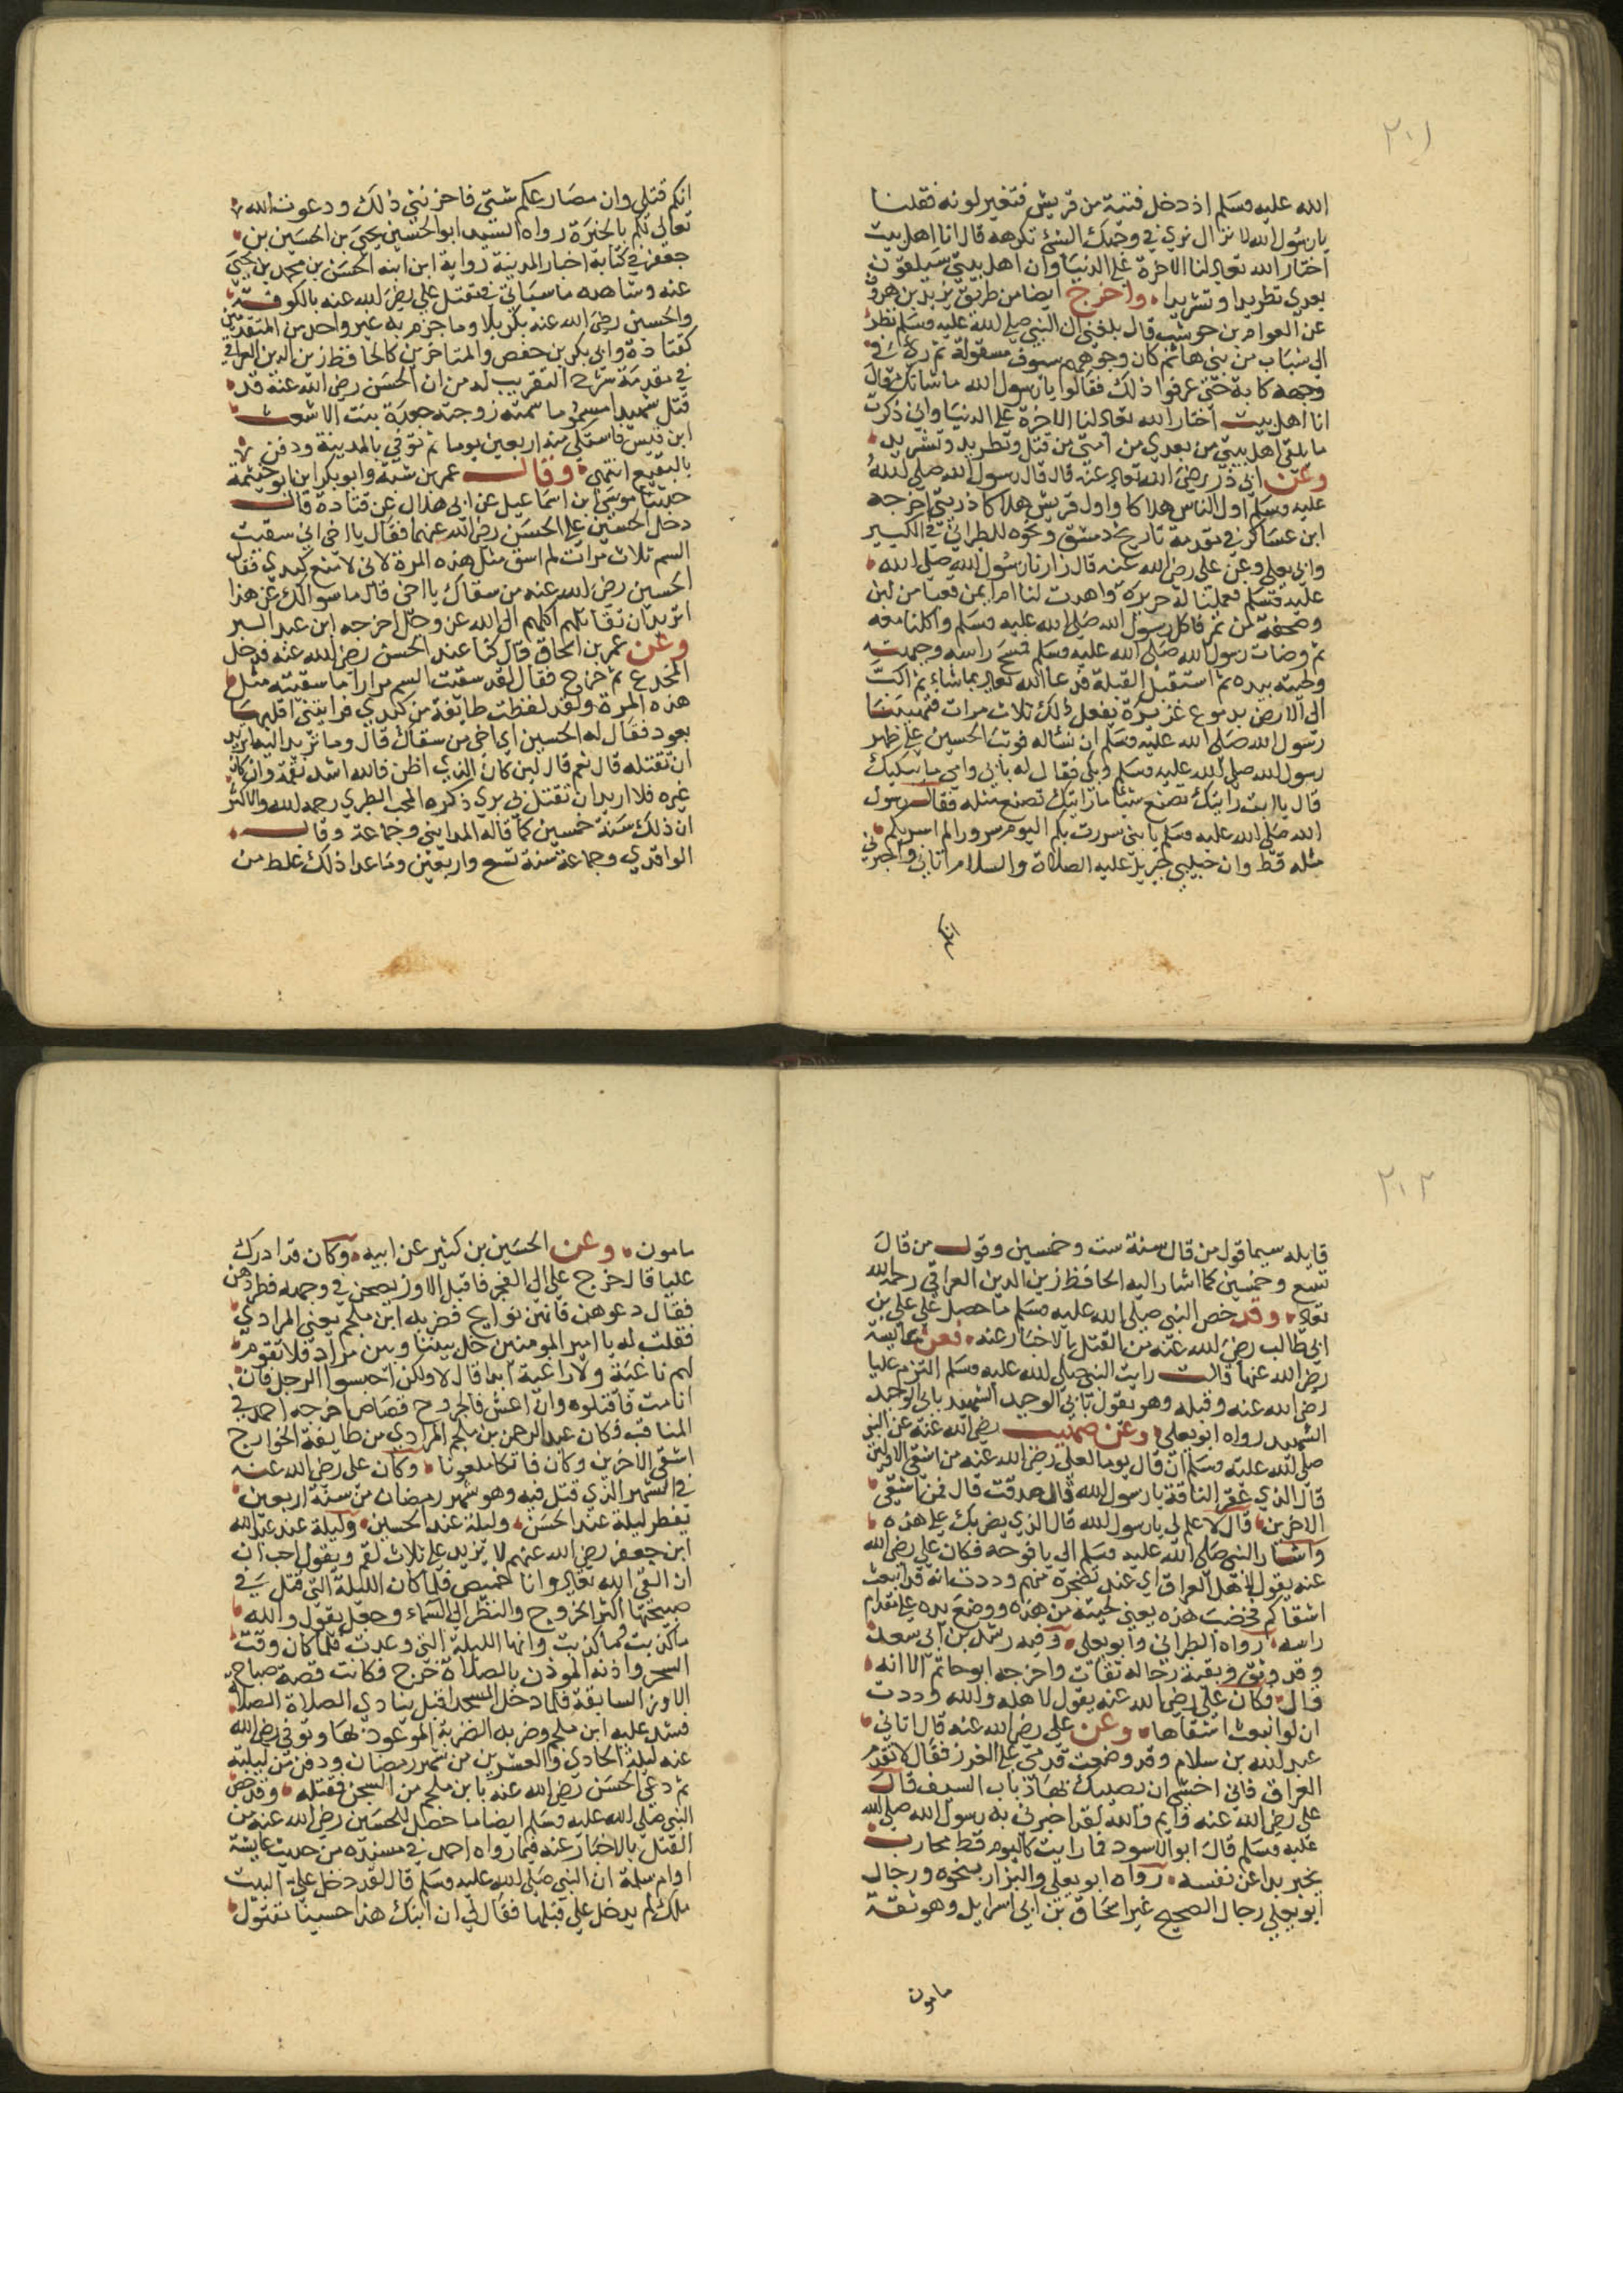 ٢٠١
الله عليه وسلم اذ دخل فتية من قريش فتغير لونه فقلنا
يا رسول الله لا نزال نرى في وجهك الشئ نكرهه قال انا اهل بيت
اختار الله تعالى لنا الاخرة على الدنيا وان اهل بيتي سيلقون
بعدي تطريدا وتشريدا واخرج ايضا من طريق يزيد بن هرون
عن العوام بن حوشب قال بلغني ان النبي صلى الله عليه وسلم نظر
الى شباب من بني هاشم كان وجوههم سيوف مصقولة ثم رئي في
وجهه كابة حتى عرفوا ذلك فقالوا يا رسول الله ما شانك قال
انا اهل بيت اختار الله تعالى لنا الاخرة على الدنيا واني ذكرت
ما يلقى اهل بيتي من بعدي من امتي من قتل وتطريد وتشريد
وعن ابي ذر رضي الله تعالى عنه قال قال رسول الله صلى الله
عليه وسلم اول الناس هلاكا واول قريش هلاكا ذريتي اخرجه
ابن عساكر في تقدمة تاريخ دمشق ونحوه للطبراني في الكبير
وابي يعلى وعن علي رضي الله عنه قال زارنا رسول الله صلى الله
عليه وسلم فعملنا له حريرة واهدت لنا ام ايمن قعبا من لبن
وصحفة من تمر فاكل رسول الله صلى الله عليه وسلم واكلنا معه
ثم وضات رسول الله صلى الله عليه وسلم فمسح راسه وجبهته
ولحيته بيده ثم استقبل القبلة فدعا الله تعالى بما شاء ثم اكب
الى الارض بدموع غزيرة يفعل ذلك ثلاث مرات فتهيبنا
رسول الله صلى الله عليه وسلم ان نساله فوثب الحسين على ظهر
رسول الله صلى الله عليه وسلم وبكى فقال له بابي وامي ما يبكيك
قال يا ابت رايتك تصنع شيئا ما رايتك تصنع مثله فقال رسول
الله صلى الله عليه وسلم يا بني سررت بكم اليوم سرورا لم اسر بكم
مثله قط وان حبيبي جبريل عليه الصلاة والسلام اتاني واخبرني
انكم
انكم قتلى وان مصارعكم شتى فاحزنني ذلك ودعوت الله
تعالى لكم بالخيرة رواه السيد ابو الحسين يحيى بن الحسين بن
جعفر في كتابه اخبار المدينة رواية ابن ابنه الحسن بن محمد بن يحيى
عنه وشاهده ما سياتي في مقتل علي رضي الله عنه بالكوفة
والحسين رضي الله عنه بكربلا وما جزم به غير واحد من المتقدمين
كقتادة وابي بكر بن حفص والمتاخرين كالحافظ زين الدين العراقي
في مقدمة شرح التقريب له من ان الحسن رضي الله عنه قد
قتل شهيدا مسموما سمته زوجته جعدة بنت الاشعث
ابن قيس فاشتكى منه اربعين يوما ثم توفي بالمدينة ودفن
بالبقيع انتهى وقال عمر بن شبة وابو بكر ابن ابو خيثمة
حدثنا موسى ابن اسماعيل عن ابي هلال عن قتادة قال
دخل الحسين على الحسن رضي الله عنهما فقال يا اخي اني سقيت
السم ثلاث مرات لم اسق مثل هذه المرة لاني لاضع كبدي فقال
الحسين رضي الله عنه من سقاك يا اخي قال ما سوالك عن هذا
اتريد ان تقاتلهم اكلهم الى الله عز وجل اخرجه ابن عبد البر
وعن عمر بن اسحاق قال كنا عند الحسن رضي الله عنه فدخل
المخدع ثم خرج فقال لقد سقيت السم مرارا ما سقيته مثل
هذه المرة ولقد لفظت طائفة من كبدي فرايتني اقلبها
بعود فقال له الحسين اي اخي من سقاك قال وما تريد اليه اتريد
ان تقتله قال نعم قال لين كان الذي اظن فالله اشد نقمة وان كان
غيره فلا اريد ان تقتل بي بري ذكره المحب الطبري رحمه الله والاكثر
ان ذلك سنة خمسين كما قاله المدايني وجماعة وقال
الواقدي وجماعة سنة تسع واربعين وما عدا ذلك غلط من
٢٠٢
قايله سيما قول من قال سنة ست وخمسين وقول من قال
تسع وخمسين كما اشار اليه الحافظ زين الدين العراقي رحمه الله
تعالى وقد خص النبي صلى الله عليه وسلم ما حصل على علي بن
ابي طالب رضي الله عنه من القتل بالاخبار عنه فعن عايشة
رضي الله عنها قالت رايت النبي صلى الله عليه وسلم التزم عليا
رضي الله عنه وقبله وهو يقول بابي الوحيد الشهيد بابي الوحيد
الشهيد رواه ابو يعلى وعن صهيب رضي الله عنه عن النبي
صلى الله عليه وسلم ان قال يوما لعلي رضي الله عنه من اشقى الاولين
قال الذي عقر الناقة يا رسول الله قال صدقت قال فمن اشقى
الاخرين قال لا علم لي يا رسول الله قال الذي يضربك على هذه
واشار النبي صلى الله عليه وسلم الى يافوخه فكان علي رضي الله
عنه يقول لاهل العراق اي عند تضجره منهم وددت انه قد انبعث
اشقاكم فخضب هذه يعني لحيته من هذه ووضع يده على مقدم
راسه رواه الطبراني وابو يعلى وفيه رشد بن ابي سعد
وقد وثق وبقية رجاله ثقات واخرجه ابو حاتم الا انه
قال وكان علي رضي الله عنه يقول لاهله والله وددت
ان لو انبعث اشقاها وعن علي رضي الله عنه قال اتاني
عبد الله بن سلام وقد وضعت قدمي على الغرز فقال لا تقدم
العراق فاني اخشى ان يصيبك بها ذباب السيف قال
علي رضي الله عنه وايم والله لقد اخبرني به رسول الله صلى الله
عليه وسلم قال ابو الاسود فما رايت كاليوم قط محارب
يخبر بدا عن نفسه رواه ابو يعلى والبزار بنحوه ورجال
ابو يعلى رجال الصحيح غير اسحاق بن ابي اسرايل وهو ثقة
مامون
مامون وعن الحسين بن كثير عن ابيه وكان قد ادرك
عليا قال خرج علي الى الفجر فاقبل الاوز يصحن في وجهه فطردهن
فقال دعوهن فانهن نوايح فضربه ابن ملجم يعني المرادي
فقلت له يا امير المومنين خل بيننا وبين مراد فلا تقوم
لهم ثاغية ولا راغية ابدا قال لا ولكن احبسوا الرجل فان
انا مت فاقتلوه وان اعش فالجروح قصاص اخرجه احمد في
المناقب وكان عبد الرحمن بن ملجم المرادي من طايفة الخوارج
اشقى الاخرين وكان فاتكا ملعونا وكان علي رضي الله عنه
في الشهر الذي قتل فيه وهو شهر رمضان من سنة اربعين
يفطر ليلة عند الحسن وليلة عند الحسين وليلة عند عبد الله
ابن جعفر رضي الله عنهم لا يزيد على ثلاث لقم ويقول احب ان
ان القى الله تعالى وانا خميص فلما كان الليلة التي قتل في
صبيحتها اكثر الخروج والنظر الى السماء وجعل يقول والله
ما كذبت ولا كذبت وانها الليلة التي وعدت فلما كان وقت
السحر واذنه الموذن بالصلاة خرج فكانت قصة صياح
الاوز السابقة فلما دخل المسجد اقبل ينادي الصلاة الصلاة
فشد عليه ابن ملجم وضربه الضربة الموعود بها وتوفي رضي الله
عنه ليلة الحادي والعشرين من شهر رمضان ودفن من ليلته
ثم دعى الحسن رضي الله عنه بابن ملجم من السجن فقتله وقد خص
النبي صلى الله عليه وسلم ايضا ما حصل للحسين رضي الله عنه من
القتل بالاخبار عنه فيما رواه احمد في مسنده من حديث عايشة
او ام سلمة ان النبي صلى الله عليه وسلم قال لقد دخل علي البيت
ملك لم يدخل علي قبلها فقال لي ان ابنك هذا حسينا مقتول